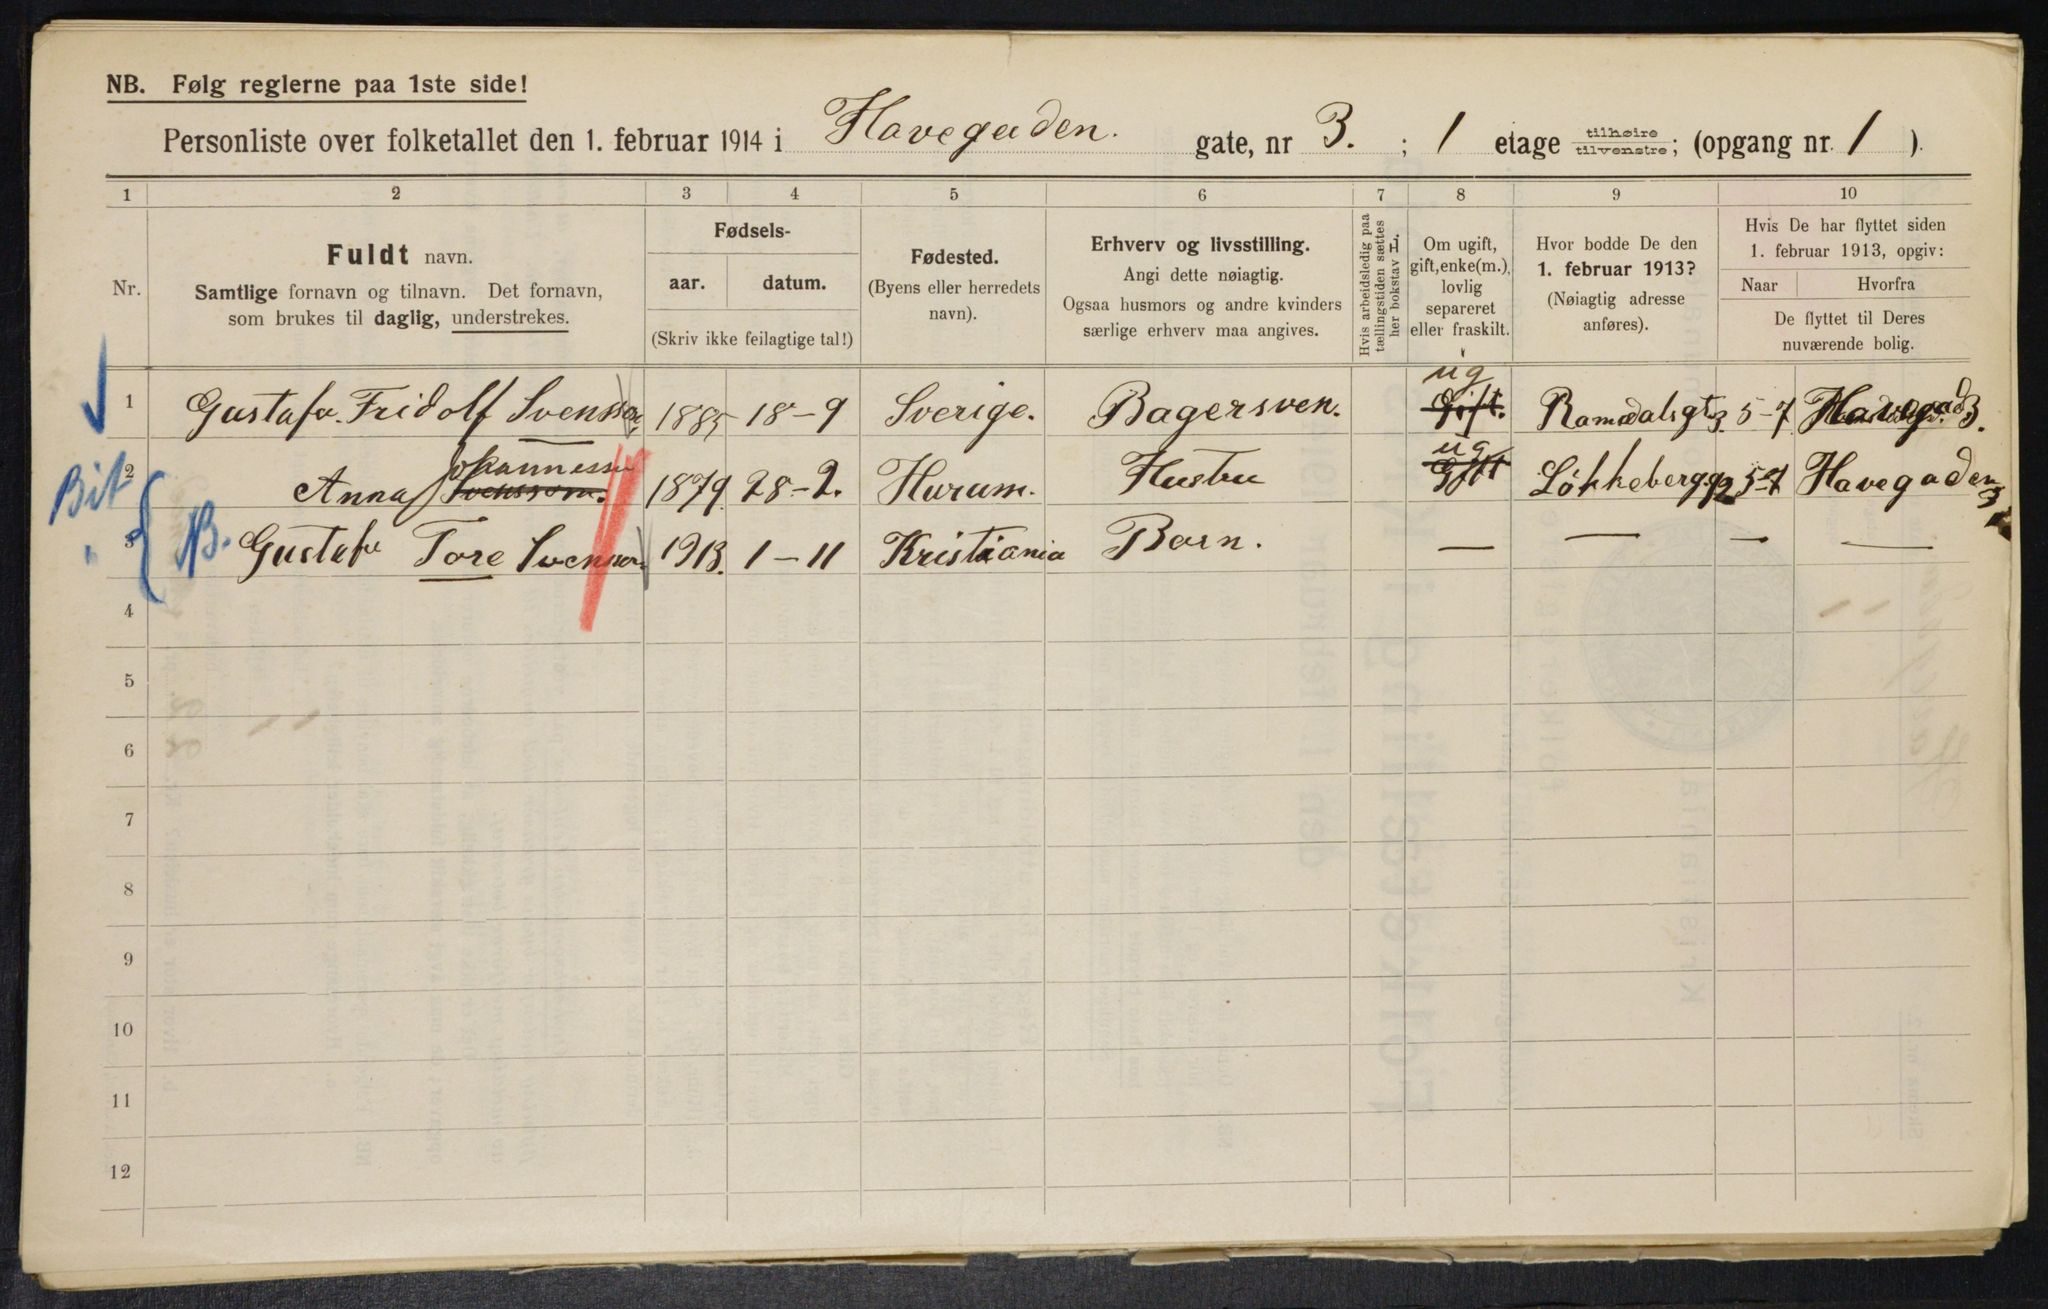 NB. Følg reglerne paa 1ste side!
Personliste over folketallet den 1. februar 1914 i Havegaden. gate, nr 3. ; 1 etage tilhøire tilvenstre; (opgang nr. 1 ).
1 2 3 4 5 6 7 8 9 10
Nr.
Fuldt navn.
Samtlige fornavn og tilnavn. Det fornavn,
som brukes til daglig, understrekes.
Fødsels-
aar. datum.
(Skriv ikke feilagtige tal!)
Fødested.
(Byens eller herredets
navn).
Erhverv og livsstilling.
Angi dette nøiagtig.
Ogsaa husmors og andre kvinders
særlige erhverv maa angives.
Hvis arbeidsledig paa
tællingstiden sættes
her bokstav L.
Om ugift,
gift, enke(m.),
lovlig
separeret
eller fraskilt.
Hvor bodde De den
1. februar 1913?
(Nøiagtig adresse
anføres).
Hvis De har flyttet siden
1. februar 1913, opgiv:
Naar Hvorfra
De flyttet til Deres
nuværende bolig.
ug
1 Gustafv. Fridolf Svensson, 1885 18-9 Sverige. Bagersven. Gift. Romsdalsgt 3. 5-7 Havegad. 3.
Johannessen ug
Bit 2 Anna Svensson. 1879 28-2. Hurum. Hustru Gift Løkkebergg 5-7 Havegaden 3
" NB. 3 Gustafv Tore Svensson. 1913. 1-11 Kristiania Barn. — — — —
4
5
6
7
8
9
10
11
12